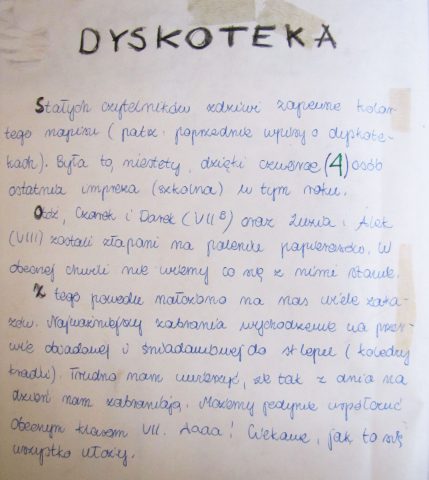 DYSKOTEKA
Stałych czytelników zdziwi zapewne kolor
tego napisu (patrz: poprzednie wpisy o dyskote-
kach). Była to, niestety, dzięki czwórce (4) osób
ostatnia impreza (szkolna) w tym roku.
Otóż, Czarek i Darek (VII B) oraz Luzia i Alek
(VIII) zostali złapani na paleniu papierosów. W
obecnej chwili nie wiemy co się z nimi stanie.
Z tego powodu nałożono na nas wiele zaka-
zów. Najważniejszy zabrania wychodzenie na przer-
wie obiadowej i śniadaniowej do sklepu (koledzy
kradli). Trudno nam uwierzyć, że tak z dnia na
dzień nam zabraniają. Możemy jedynie współczuć
obecnym klasom VII. Aaaa! Ciekawe, jak to się
wszystko ułoży.